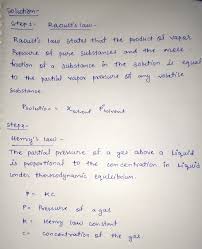 Solution-
Step 1- Raoult's law-
Raoult's law states that the product of vapor
Pressure of pure substances and the mole
fraction of a substance in the solution is equal
to the partial vapor pressure of any volatile
Substance.
Psolution = Xsolvent Psolvent
Step 2-
Henry's law -
The partial pressure of a gas above a liquid
is proportional to the concentration in liquid
under thermodynamic equilibrium.
P = KC
P = Pressure of a gas
K = Henry law constant
C = concentration of the gas.